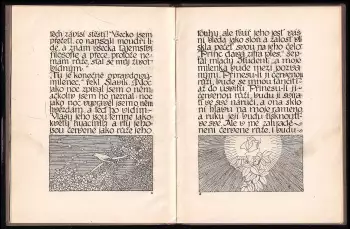 lech závisí štěstí! "Všecko jsem
přečetl, co napsali moudří li-
dé, a znám všecka tajemství
filosofie a přece, protože ne-
mám růže, stal se můj život
bídným."
"Tu je konečně opravdový
milenec," řekl Slavík. "Noc
jako noc zpíval jsem o něm,
ačkoliv jsem ho neznal: noc
jako noc vypravěl jsem o něm
hvězdám, a teď ho vidím.
Vlasy jeho jsou temné jako
květy hyacintu a rty jeho
jsou červené jako růže jeho
touhy; ale tvář jeho jest váš-
ní bledá jako slon a žalost vti-
skla pečeť svou na jeho čelo."
"Princ dává zítra ples," šep-
tal mladý Student, "a moje
milenka bude mezi pozva-
nými. Přinesu-li jí červenou
růži, bude se mnou tančiti
až do úsvitu. Přinesu-li jí
červenou růži, budu ji svíra-
ti ve své náruči, a ona sklo-
ní hlavu na moje rameno
a ruku její budu tisknouti
ve své. Ale v mé zahradě
není červené růže, i budu